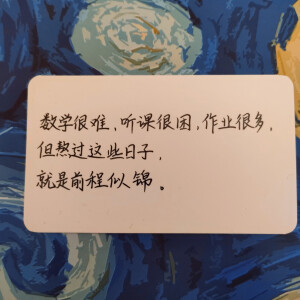 数学很难，听课很困，作业很多，
但熬过这些日子，
就是前程似锦。